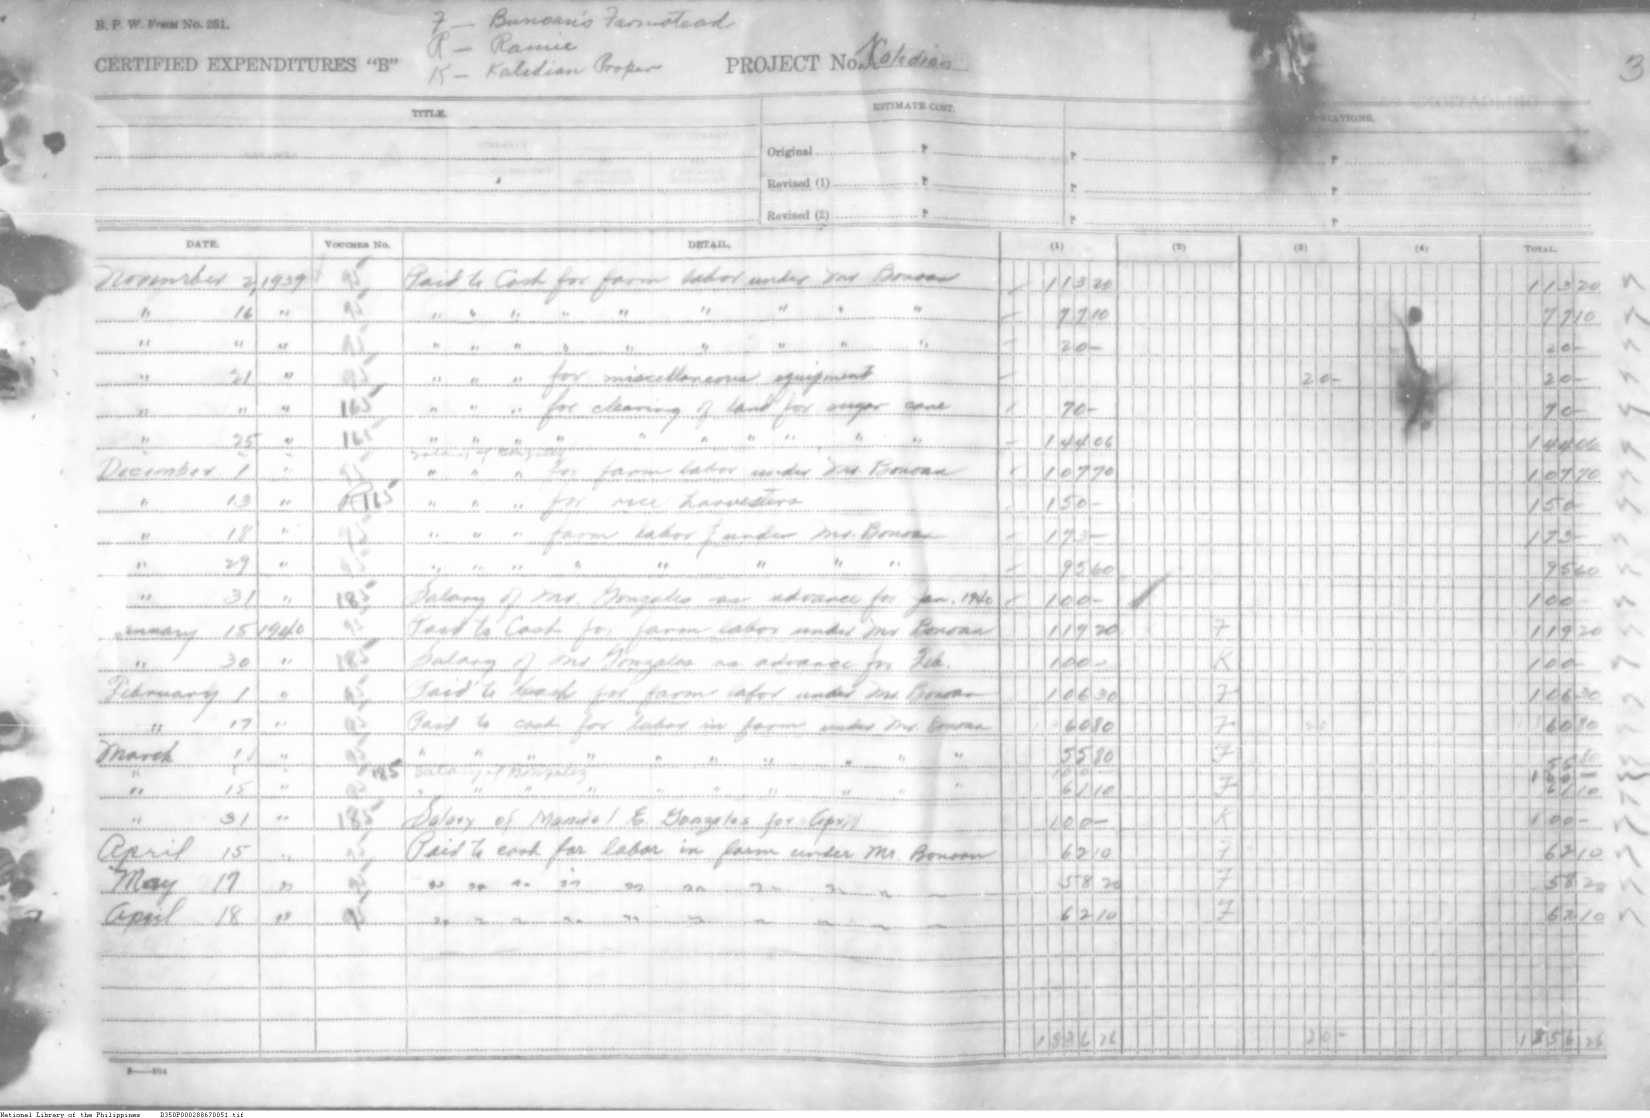 B. P. W. Form No. 251.
F — Bunoan's Farmstead
R — Ramie
K — Kalidian Proper
CERTIFIED EXPENDITURES "B"
PROJECT No. Kalidian
3
TITLE.
ESTIMATE COST.
Original ₱ ₱ ₱
Revised (1) ₱ ₱ ₱
Revised (2) ₱ ₱ ₱
DATE. VOUCHER No. DETAIL. (1) (2) (3) (4) TOTAL.
November 2, 1939 95 Paid to Cash for farm labor under Mr Bonoan 113 20 113 20
" 16 " 95 " " " " " " " " " 77 10 77 10
" " " 95 " " " " " " " " " 20 - 20 -
" 21 " 95 " " " for miscellaneous equipment 20 - 20 -
" " " 165 " " " for clearing of land for sugar cane 70 - 70 -
" 25 " 165 " " " " " " " " " " 144 06 144 06
Salary of Gonzales
December 1 " 95 " " " for farm labor under Mr. Bonoan 107 70 107 70
" 13 " R165 " " " for rice harvesters 150 - 150 -
" 18 " 95 " " " farm labor under Mr. Bonoan 173 - 173 -
" 29 " 95 " " " " " " " " 95 60 95 60
" 31 " 185 Salary of Mr. Gonzales as advance for Jan. 1940 100 - 100 -
January 15 1940 95 Paid to Cash for farm labor under Mr Bonoan 119 20 F 119 20
" 30 " 185 Salary of Mr Gonzales as advance for Feb. 100 - K 100 -
February 1 " 95 Paid to Cash for farm labor under Mr. Bonoan 106 30 F 106 30
" 17 " 95 Paid to cash for labor in farm under Mr. Bonoan 60 80 F 60 80
March 1 " 95 " " " " " " " " " " 55 80 F 55 80
" " " 185 Salary of Gonzales 100 - 100 -
" 15 " 95 " " " " " " " " " " 61 10 F 61 10
" 31 " 185 Salary of Manuel E. Gonzales for April 100 - K 100 -
April 15 " 95 Paid to cash for labor in farm under Mr. Bonoan 62 10 F 62 10
May 17 " 95 " " " " " " " " " " 58 20 F 58 20
April 18 " 95 " " " " " " " " " " 62 10 F 62 10
1836 26 20 - 1856 26
National Library of the Philippines D350P000288670051.tif